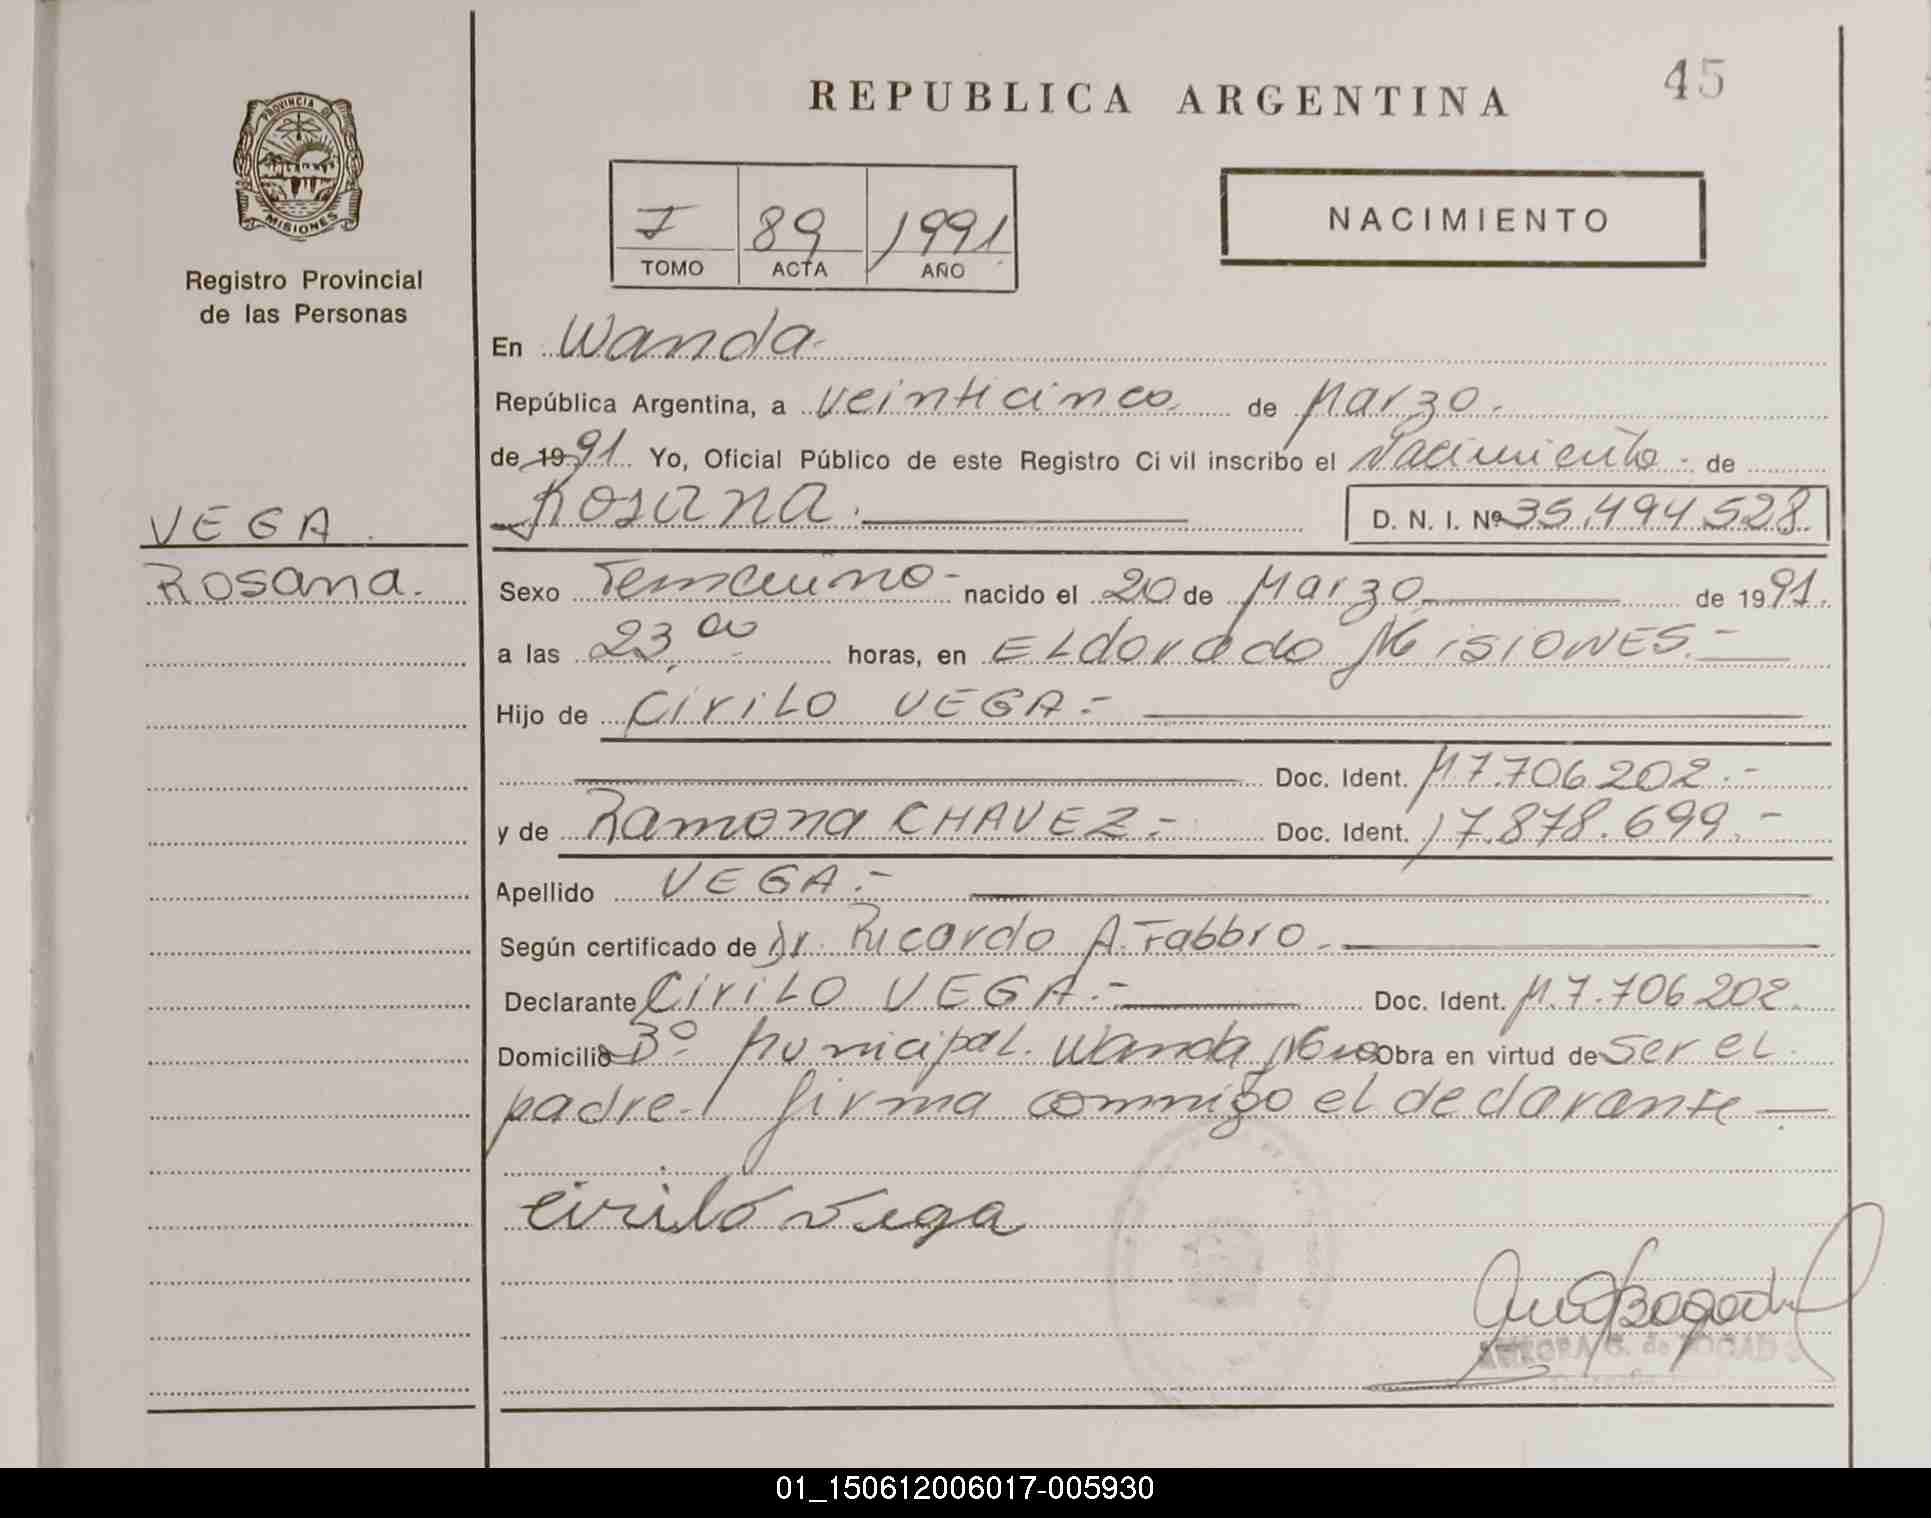 45
REPUBLICA ARGENTINA
PROVINCIA DE
MISIONES
Registro Provincial
de las Personas
I 89 1991
TOMO ACTA AÑO
NACIMIENTO
En Wanda.-
República Argentina, a veinticinco de Marzo.
de 1991 Yo, Oficial Público de este Registro Civil inscribo el Nacimiento - de
Rosana. D. N. I. Nº 35.494.528.
VEGA.
Rosana.
Sexo Femenino - nacido el 20 de Marzo de 1991.
a las 23,00 horas, en ELdorado Misiones.-
Hijo de Cirilo VEGA.-
Doc. Ident. M7.706.202.-
y de Ramona CHAVEZ.- Doc. Ident. 17.878.699.-
Apellido VEGA.-
Según certificado de Dr. Ricardo A. Fabbro.-
Declarante Cirilo VEGA.- Doc. Ident. M.7.706.202.
Domicilio Bº Municipal. Wanda Obra en virtud de ser el
padre.- firma conmigo el declarante
Cirilo Vega
01_150612006017-005930